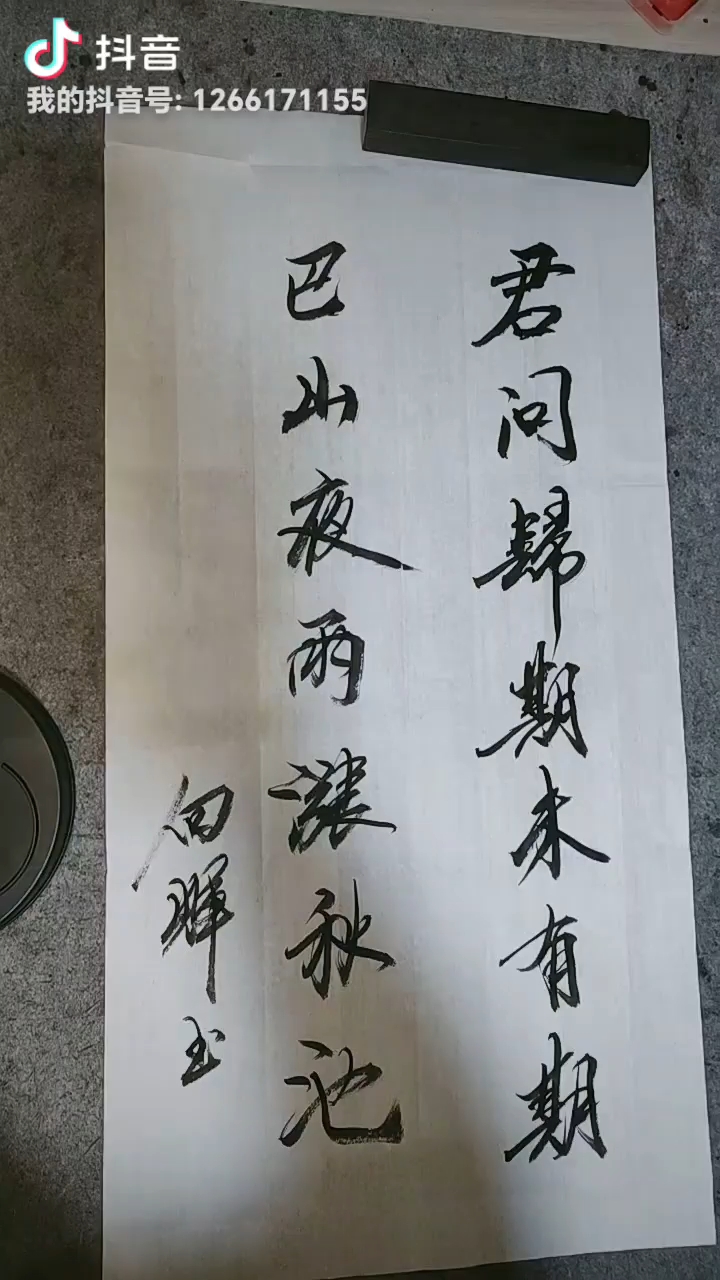 抖音
我的抖音号: 1266171155
君问歸期未有期
巴山夜雨漲秋池
向暉书